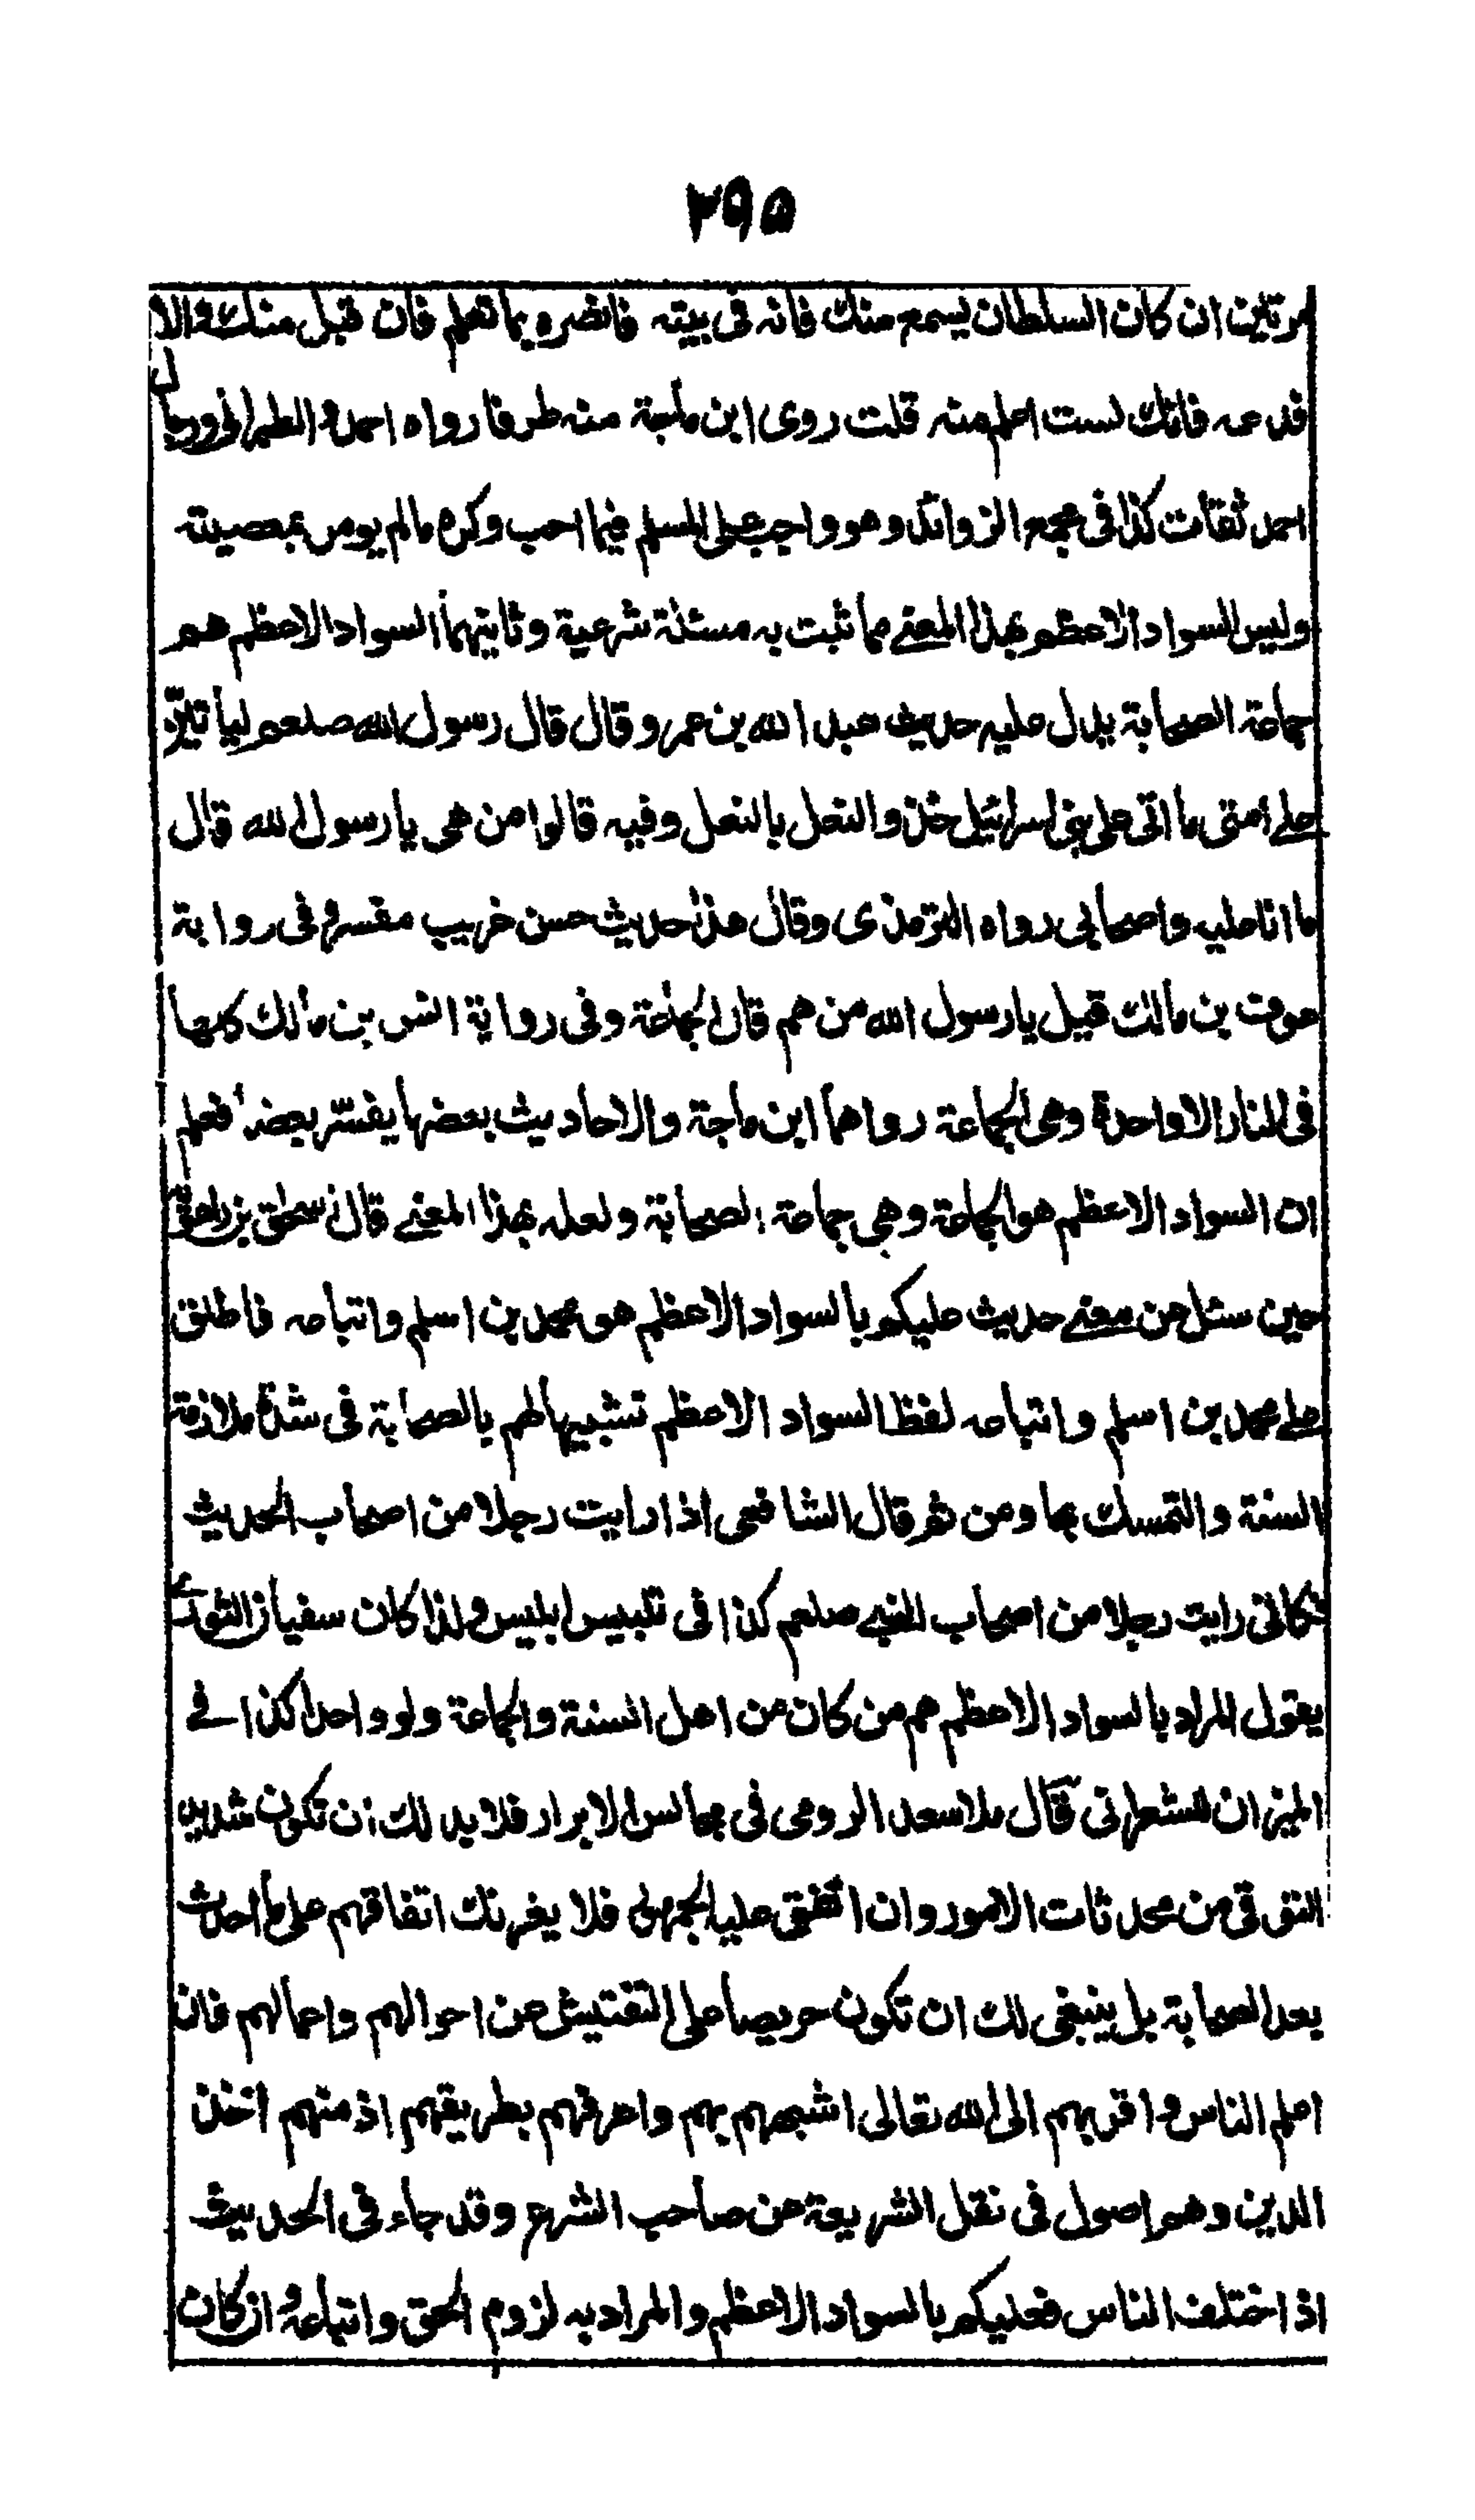 ٢٩٥
مرتين ان كان السلطان يسمع منك فاته فى بيته فاخبره بما تعلم فان قبل منك والا
فدعه فانك لست اعلم منه قلت روى ابن ماجة منه طرفا رواه احمد والطبرانى ورجال
احمد ثقات كذا فى مجمع الزوائد وهو واجب على المسلم فيما احب وكره مالم يومر بمعصيته
وليس السواد الاعظم بهذا المعنے مما تثبت به مسئلة شرعية وثانيتهما السواد الاعظم هو
جماعة الصحابة يدل عليه حديث عبد الله بن عمرو قال قال رسول الله صلعم لياتين
علے امتى ما اتى على بنى اسرائيل حذو النعل بالنعل وفيه قالوا من هى يا رسول الله قال
ما انا عليه واصحابى رواه الترمذى وقال هذا حديث حسن غريب مفسر وفى رواية
عوف بن مالك قيل يا رسول الله من هم قال الجماعة وفى رواية انس بن مالك كلها
فى النار الا واحدة وهى الجماعة رواهما ابن ماجة والاحاديث بعضها يفسر بعضا فعلم
ان السواد الاعظم هو الجماعة وهى جماعة الصحابة ولعله بهذا المعنے قال اسحق بن راهويه
حين سئل عن معنے حديث عليكم بالسواد الاعظم هو محمد بن اسلم واتباعه فاطلق
علے محمد بن اسلم واتباعه لفظ السواد الاعظم تشبيها لهم بالصحابة فى شدة ملازمة
السنة والتمسك بها ومن ثم قال الشافعى اذا رايت رجلا من اصحاب الحديث
فكانى رايت رجلا من اصحاب النبے صلعم كذا فى تلبيس ابليس ولذا كان سفيان الثورے
يقول المراد بالسواد الاعظم هم من كان من اهل السنة والجماعة ولو واحدا كذا فے
الميزان للشعرانى قال ملا سعد الرومى فى مجالس الابرار فلا بد لك ان تكون شديد
التوقى من محدثات الامور وان اتفق عليه الجمهور فلا يغرنك اتفاقهم على ما احدث
بعد الصحابة بل ينبغى لك ان تكون حريصا على التفتيش عن احوالهم واعمالهم فان
اعلم الناس واقربهم الى الله تعالى اشبههم بهم واعرفهم بطريقهم اذ منهم اخذ
الدين وهم اصول فى نقل الشريعة عن صاحب الشرع وقد جاء فى الحديث
اذ اختلف الناس فعليكم بالسواد الاعظم والمراد به لزوم الحق واتباعه وان كان